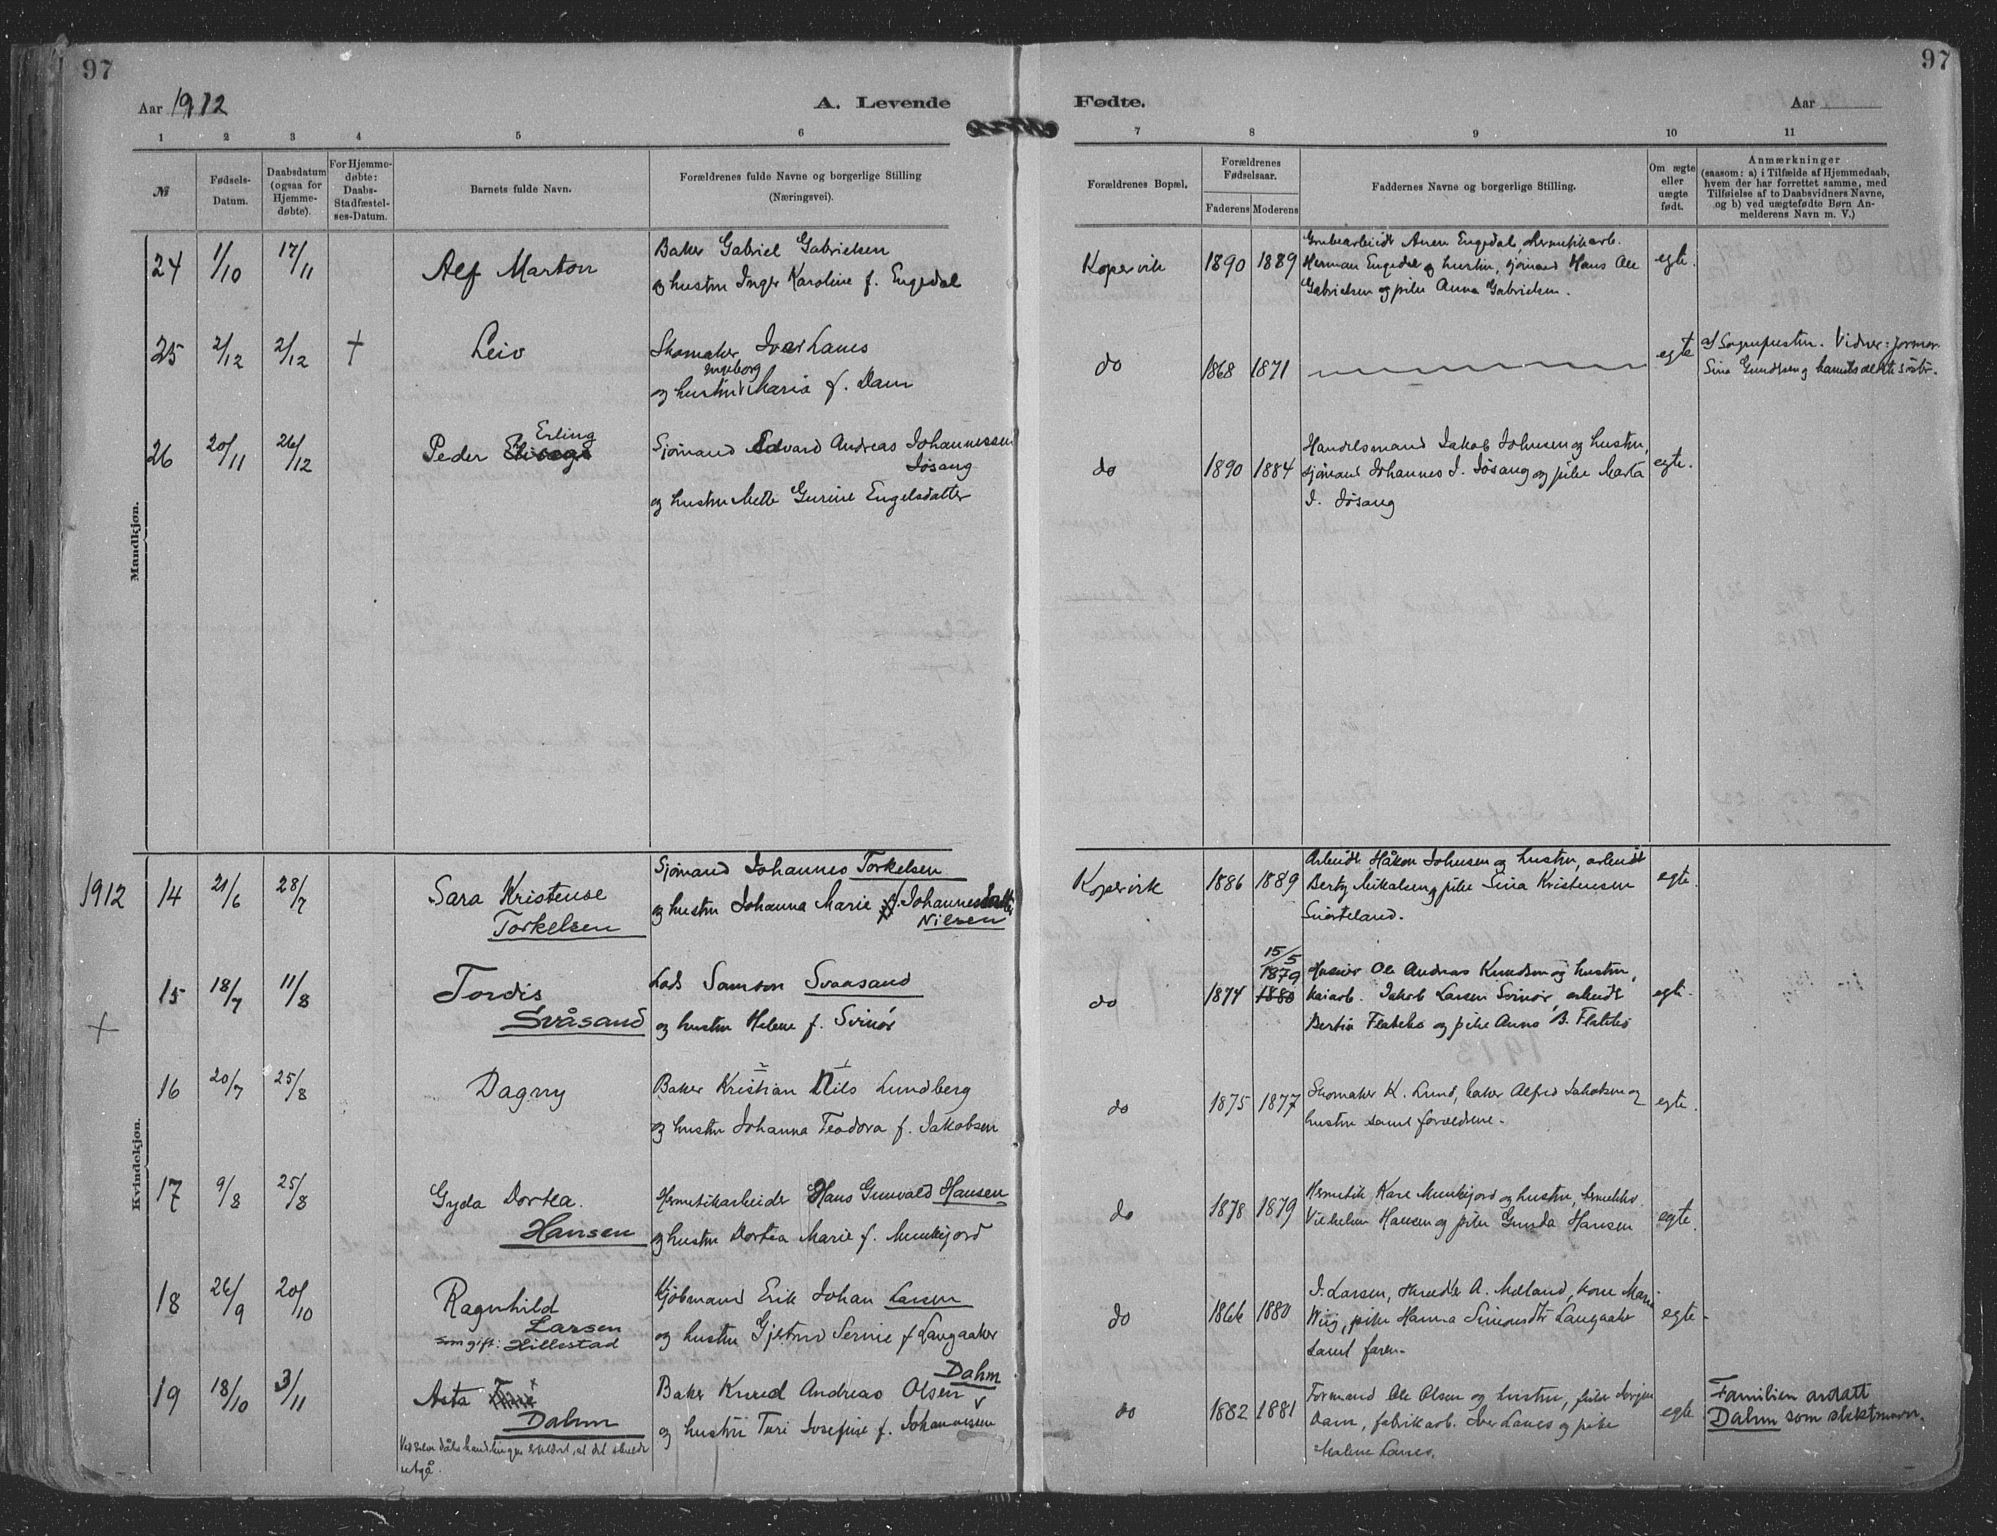 97
97
Aar 1912
A. Levende
Fødte.
Aar
1 2 3 4 5 6 7 8 9 10 11
№
Fødsels-
Datum.
Daabsdatum
(ogsaa for
Hjemme-
døbte).
For Hjemme-
døbte:
Daabs-
Stadfæstel-
ses-Datum.
Barnets fulde Navn.
Forældrenes fulde Navne og borgerlige Stilling
(Næringsvei).
Forældrenes Bopæl.
Forældrenes
Fødselsaar.
Faderens Moderens
Faddernes Navne og borgerlige Stilling.
Om ægte
eller
uægte
født.
Anmærkninger
(saasom: a) i Tilfælde af Hjemmedaab,
hvem der har forrettet samme, med
Tilføielse af to Daabsvidners Navne,
og b) ved uægtefødte Børn An-
melderens Navn m. V.)
Mandkjøn.
24 1/10 17/11 Alf Marton
Baker Gabriel Gabrielsen
og hustru Inger Karoline f. Engedal
Kopervik 1890 1889
Herman Engedal og hustru, sjømand Hans Ole
Gabrielsen og pike Anna Gabrielsen.
egte.
25 2/12 2/12 + Leiv
Skomaker Iver Lanes
Ingeborg
og hustru Maria f. Dam
do 1868 1871
+
egte
a/ Sogneprsten. Vidner: jormor
26 20/11 26/12 Peder Erling
Sjømand Edvard Andreas Johannessen
Jøsang
og hustru Mette Gurine Engelsdatter
do 1890 1884
Handelsmand Jakob Johnsen og hustru,
sjømand Johannes I. Jøsang og pike Marta
I. Jøsang
egte.
Kvindekjøn.
1912
14 21/6 28/7 Sara Kristense
Torkelsen
Sjømand Johannes Torkelsen
og hustru Johanna Marie f. Johannesdatter
Nilsen
Kopervik 1886 1889
Arbeidr. Håkon Johnsen og hustru, arbeidr
Berty Mikalsen og pike Sina Kristensen
Snørteland.
egte.
+
15 18/7 11/8 Tordis
Svåsand
Lods Samson Svaasand
og hustru Helene f. Svinør
do 1874
15/5
1879
1880
Ole Andreas Knudsen og hustru,
kaiarb. Jakob Larsen Svinør, arbeidr
egte.
16 20/7 25/8 Dagny
Baker Kristian Nils Lundberg
og hustru Johanna Teodora f. Jakobsen
do 1875 1877
Skomaker K. Lund, baker Alfred Jakobsen og
hustru samt forældrene.
egte.
17 9/8 25/8 Gyda Dortea.
Hansen
Hermetikarbeider Hans Gunvald Hansen
og hustru Dortea Marie f. Munkejord
do 1878 1879
Hermetik Kare Munkejord og hustru,
Vilhelm Hansen og pike Gunda Hansen
egte.
18 26/9 20/10 Ragnhild
Larsen
som gift: Hillestad
Kjøbmand Erik Johan Larsen
og hustru Gjetrud Serine f. Langaaker
do 1866 1880
J. Larsen, A. Meland, kone Marie
Wiig, pike Hanna Simonsdtr Langaaker
samt faren.
egte.
19 18/10 3/11 Asta
Dahm
Ved selve dåbshandlingen erklært, at det skulde
utgå.
Dahm
Baker Knud Andreas Olsen
og hustru Turi Josefine f. Johannesen
do 1882 1881
Formand Ole Olsen og hustru, pike
Dam, fabrikarb. Iver Lanes og pike
Malene Lanes.
egte
Familien antatt
Dahm som slektsnavn.